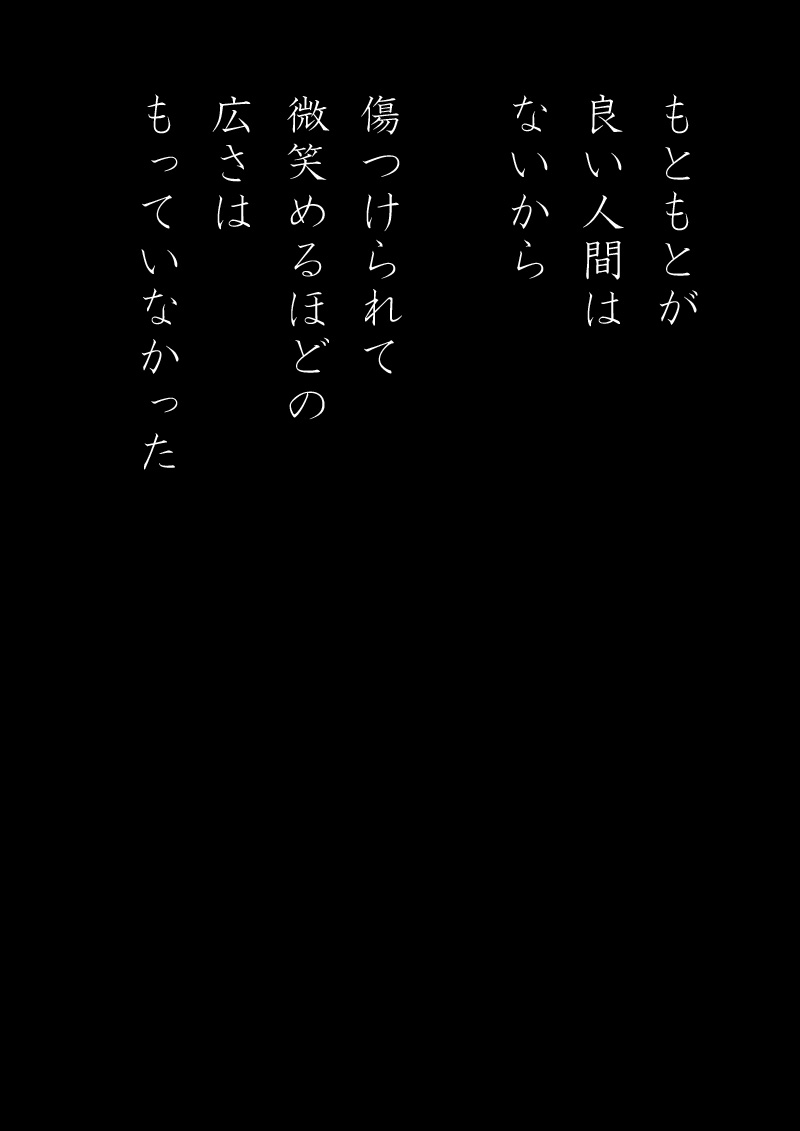 もともとが
良い人間は
ないから
傷つけられて
微笑めるほどの
広さは
もっていなかった